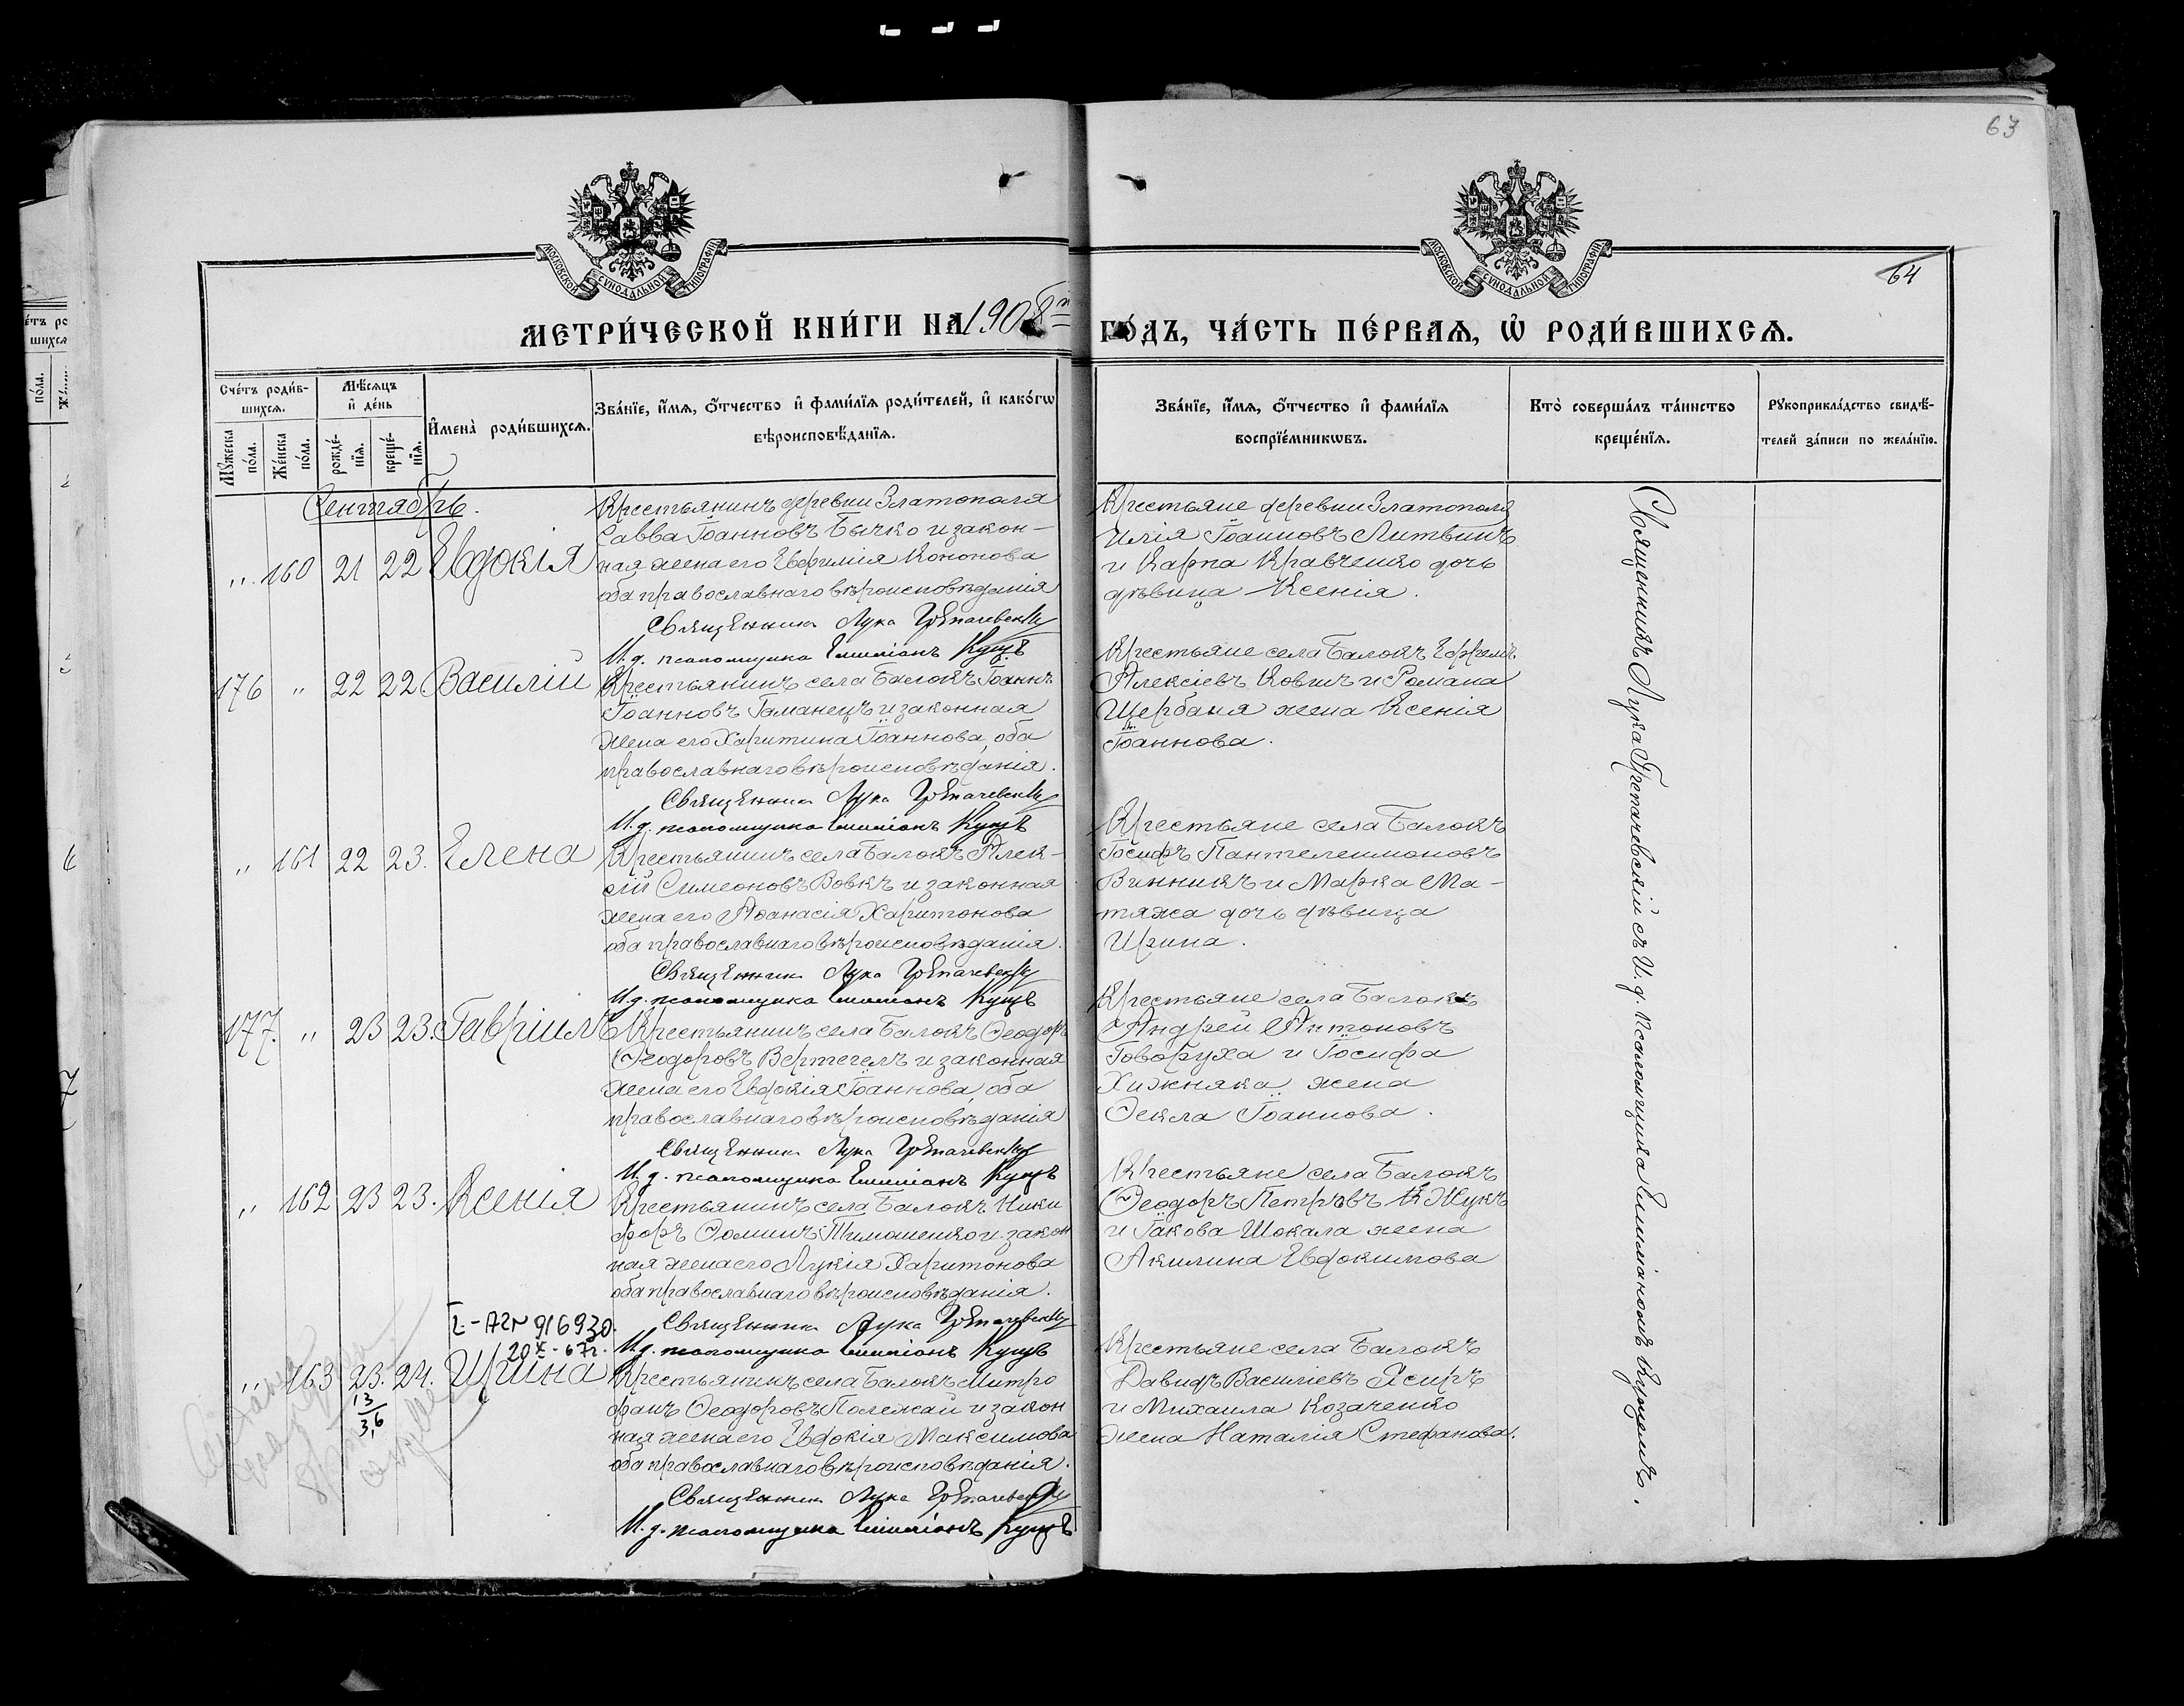 63
64
МОСКОВСКОЙ СѴНОДАЛЬНОЙ ТИПОГРАФІИ
МОСКОВСКОЙ СѴНОДАЛЬНОЙ ТИПОГРАФІИ
МЕТРИ́ЧЕСКОЙ КНИ́ГИ НА 1908й ГО́ДЪ, ЧА́СТЬ ПЕ́РВАѦ, Ѡ҆ РОДИ́ВШИХСѦ.
Сче́тъ роди́в-
шихсѧ.
Мꙋ́жеска по́ла.
Же́нска по́ла.
Мѣ́сѧцъ
и҆ де́нь
рожде́-
нїѧ.
креще́-
нїѧ.
И҆мена̀ роди́вшихсѧ.
Зва́нїе, и҆́мѧ, ѻ҆́тчество и҆ фами́лїѧ роди́телей, и҆ како́гѡ
вѣроисповѣ́данїѧ.
Зва́нїе, и҆́мѧ, ѻ҆́тчество и҆ фами́лїѧ
воспрїе́мникѡвъ.
Кто̀ соверша́лъ та́инство
креще́нїѧ.
Рꙋкоприкла́дство свидѣ́-
телей за́писи по жела́нїю.
Сентябрь.
" 160 21 22 Евдокія
Крестьянинъ деревни Златополя
Савва Іоанновъ Бычко и закон-
ная жена его Евфимія Кононова
оба православнаго вѣроисповѣданія
Священникъ Лука Грепачевскій
И.д. псаломщика Емиліанъ Куцъ
Крестьяне деревни Златополя
Илія Іоанновъ Литвинъ
и Карпа Кравченко дочь
дѣвица Ксенія.
176 " 22 22 Василій
Крестьянинъ села Балокъ Іоаннъ
Іоанновъ Гаманецъ и законная
жена его Харитина Іоаннова, оба
православнаго вѣроисповѣданія.
Священникъ Лука Грепачевскій
И.д. псаломщика Емиліанъ Куцъ
Крестьяне села Балокъ Ефремъ
Алексіевъ Ковик и Романа
Щербаня жена Ксенія
Іоаннова.
" 161 22 23. Елена
Крестьянинъ села Балокъ Алек-
сій Симеоновъ Вовкъ и законная
жена его Аѳанасія Харитонова
оба православнаго вѣроисповѣданія.
Священникъ Лука Грепачевскій
И.д. псаломщика Емиліанъ Куцъ
Крестьяне села Балокъ
Іосифъ Пантелеимоновъ
Винникъ и Марка Ма-
тяжа дочь дѣвица
Ирина.
177. " 23 23. Гавріилъ
Крестьянинъ села Балокъ Ѳеодоръ
Ѳеодоровъ Вертегелъ и законная
жена его Евдокія Іоаннова, оба
православнаго вѣроисповѣданія
Священникъ Лука Грепачевскій
И.д. псаломщика Емиліанъ Куцъ
Крестьяне села Балокъ
Андрей Антоновъ
Говоруха и Іосифа
Хижняка жена
Ѳекла Іоаннова.
" 162 23 23. Ксенія
Крестьянинъ села Балокъ Ники
форъ Ѳоминъ Тимошенко и закон
ная жена его Лукія Харитонова
оба православнаго вѣроисповѣданія.
Священникъ Лука Грепачевскій
И.д. псаломщика Емиліанъ Куцъ
Крестьяне села Балокъ
Ѳеодоръ Петровъ Жукъ
и Іакова Шокала жена
Акилина Евдокимова
916930.
20 X - 67г.
" 163 23. 24. Ирина
13
3,6
Крестьянинъ села Балокъ Митро
фанъ Ѳеодоровъ Полежай и закон
ная жена его Евдокія Максимова
оба православнаго вѣроисповѣданія.
Священникъ Лука Грепачевскій
И.д. псаломщика Емиліанъ Куцъ
Крестьяне села Балокъ
Давидъ Василіевъ Ясиръ
и Михаила Козаченко
жена Наталія Стефанова.
Священникъ Лука Грепачевскій съ И.д. псаломщика Емиліаномъ Куцемъ.